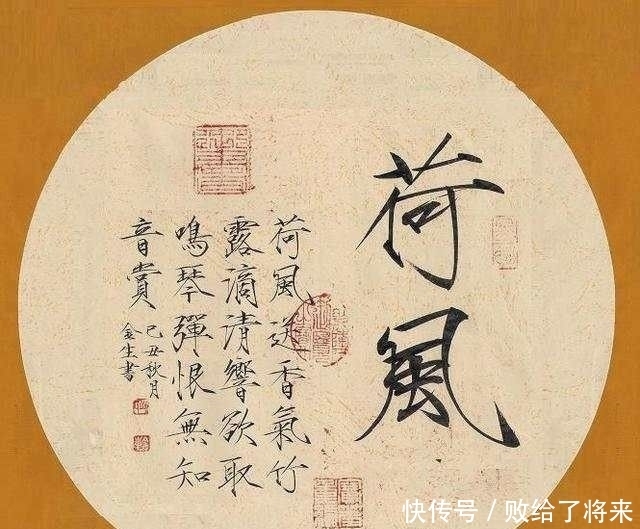 荷風
荷風送香氣竹
露滴清響欲取
鳴琴彈恨無知
音賞
己丑秋月
金生書
快传号 / 败给了将来